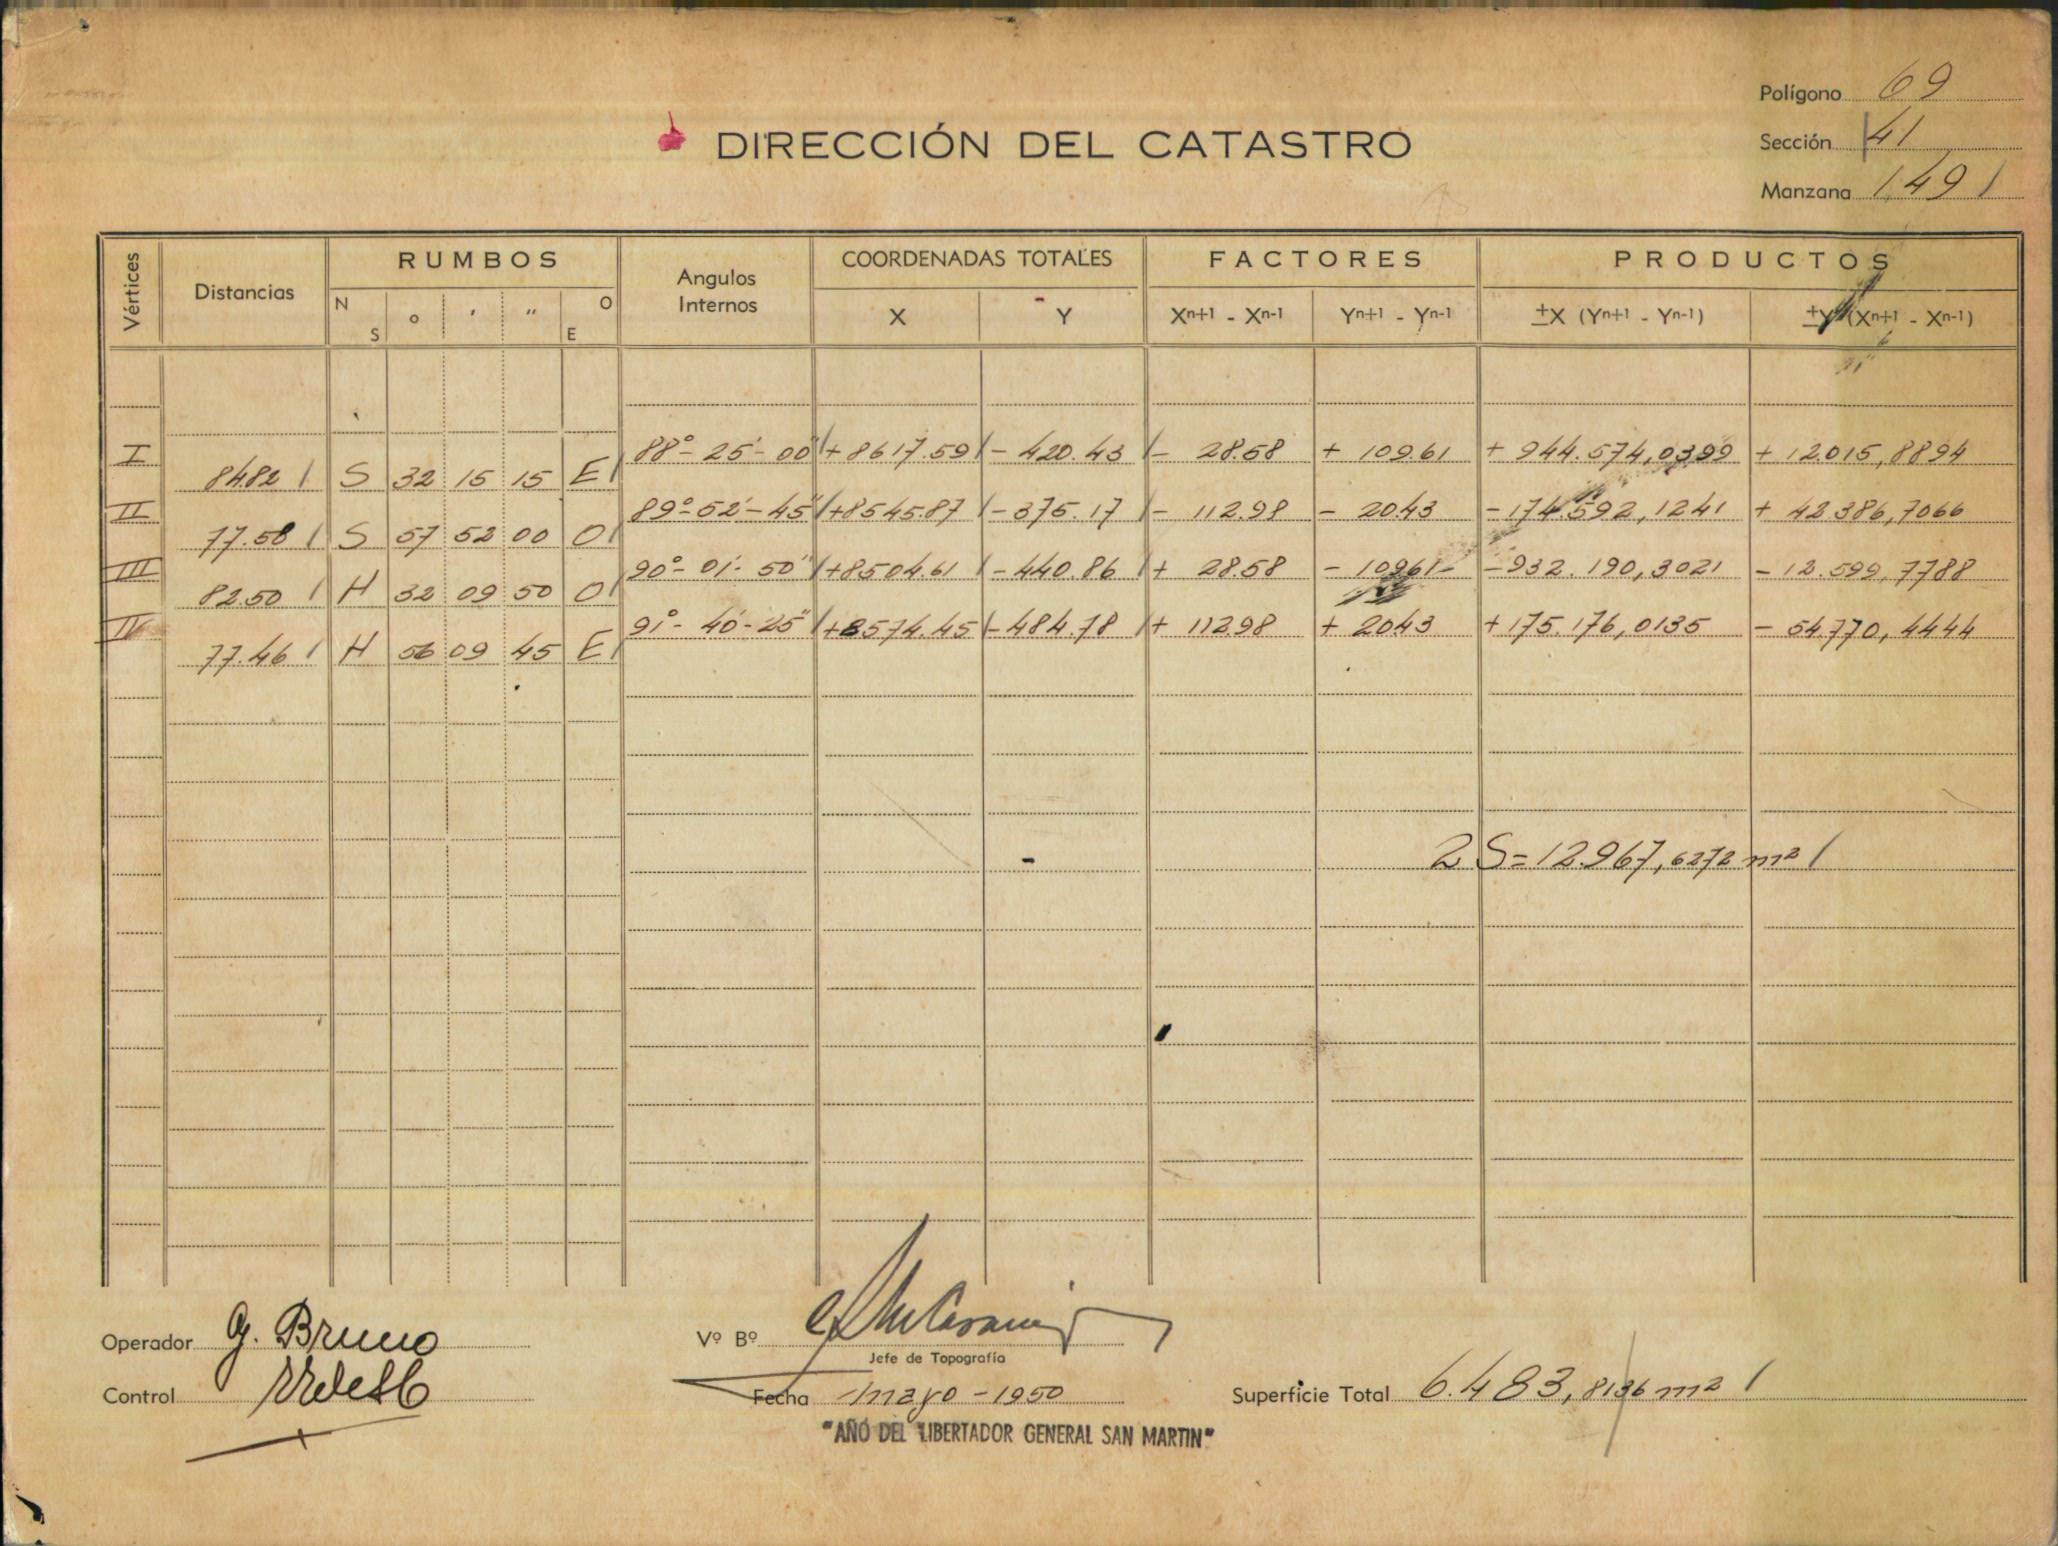 Polígono 69
DIRECCIÓN DEL CATASTRO
Sección 41
Manzana 149
Vértices
Distancias
RUMBOS
N S ° ' " O E
Angulos Internos
COORDENADAS TOTALES
X Y
FACTORES
Xn+1 - Xn-1 Yn+1 - Yn-1
PRODUCTOS
±X (Yn+1 - Yn-1) ±Y (Xn+1 - Xn-1)
I 88°-25'-00" +8617.59 -420.43 - 28.58 + 109.61 + 944.574,0399 + 12015,8894
84.82 S 32 15 15 E
II 89°-52'-45" +8545.87 -375.17 - 112.98 - 20.43 -174.592,1241 + 42386,7066
77.58 S 57 52 00 O
III 90°-01'-50" +8504.61 -440.86 + 28.58 - 109.61 -932.190,3021 - 12.599,7788
82.50 N 32 09 50 O
IV 91°-40'-25" +8574.45 -484.78 + 112.98 + 20.43 +175.176,0135 - 54.770,4444
77.46 N 56 09 45 E
2S=12.967,6272 m²
Operador G. Bruno
Vº Bº
Jefe de Topografía
Control
Fecha mayo-1950
Superficie Total 6.483,8136 m²
"AÑO DEL LIBERTADOR GENERAL SAN MARTIN"